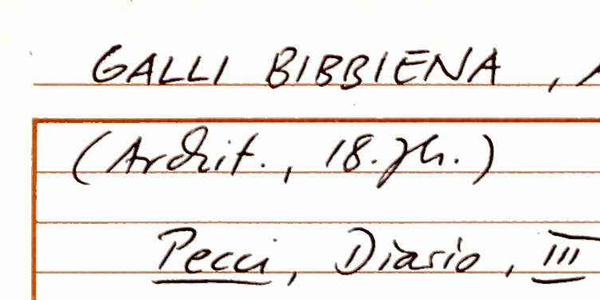 GALLI BIBBIENA ,
(Archit., 18. Jh.)
Pecci, Diario, III